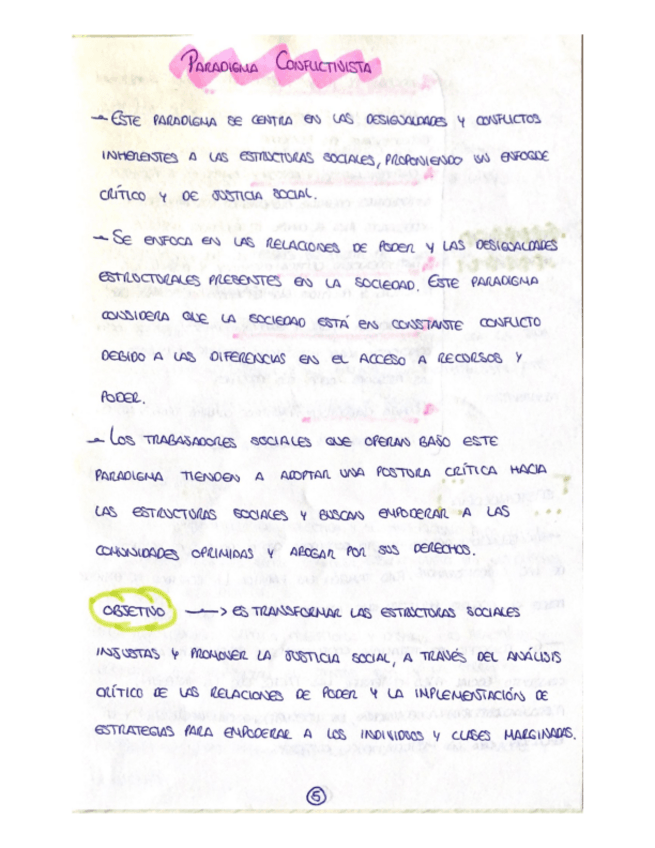 PARADIGMA CONFLICTIVISTA
→ ESTE PARADIGMA SE CENTRA EN LAS DESIGUALDADES Y CONFLICTOS
INHERENTES A LAS ESTRUCTURAS SOCIALES, PROPONIENDO UN ENFOQUE
CRÍTICO Y DE JUSTICIA SOCIAL.
→ SE ENFOCA EN LAS RELACIONES DE PODER Y LAS DESIGUALDADES
ESTRUCTURALES PRESENTES EN LA SOCIEDAD. ESTE PARADIGMA
CONSIDERA QUE LA SOCIEDAD ESTÁ EN CONSTANTE CONFLICTO
DEBIDO A LAS DIFERENCIAS EN EL ACCESO A RECURSOS Y
PODER.
→ LOS TRABAJADORES SOCIALES QUE OPERAN BAJO ESTE
PARADIGMA TIENDEN A ADOPTAR UNA POSTURA CRÍTICA HACIA
LAS ESTRUCTURAS SOCIALES Y BUSCAN EMPODERAR A LAS
COMUNIDADES OPRIMIDAS Y ABOGAR POR SUS DERECHOS.
OBJETIVO → ES TRANSFORMAR LAS ESTRUCTURAS SOCIALES
INJUSTAS Y PROMOVER LA JUSTICIA SOCIAL, A TRAVÉS DEL ANÁLISIS
CRÍTICO DE LAS RELACIONES DE PODER Y LA IMPLEMENTACIÓN DE
ESTRATEGIAS PARA EMPODERAR A LOS INDIVIDUOS Y CLASES MARGINADAS.
5